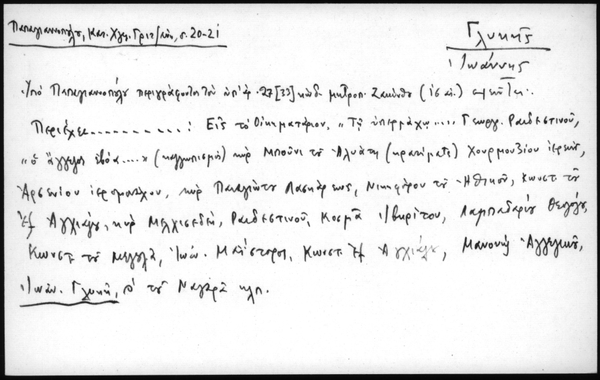 Παπαγιαννοπούλου, Κατ. Χφφ. Γριτσάν., σ. 20-21
Γλυκής
Ἰωάννης
Ὑπὸ Παπαγιαννοπούλου περιγράφοντα τὸν ὑπ' ἀρ. 27 [33] κώδ. μητροπ. Ζακύνθου (ις αἰ.)
Περιέχει..........: Εἰς τὸ Οἰκηματάριον, "Τῇ ὑπερμάχῳ...." Γεωργ. Ραιδεστινοῦ,
"ὁ ἄγγελος ἐβόα...." (καλλωπισμὸς) κὺρ Μπούνη τοῦ Ἀλυάτη (κρατήματα) Χουρμουζίου ἱερέως,
Ἀρσενίου ἱερομονάχου, κὺρ Παναγιώτου Λασκάρεως, Νικηφόρου τοῦ Ἠθικοῦ, Κωνστ. τοῦ
ἐξ Ἀγχιάλου, κὺρ Μελχισεδέκ, Ραιδεστινοῦ, Κοσμᾶ Ἰβηρίτου, Λαμπαδαρίου
Κωνστ. τοῦ Μαγουλᾶ, Ἰωάν. Μαΐστορος, Κωνστ. ἐξ Ἀγχιάλου, Μανουὴλ
Ἰωάν. Γλυκῆ, τοῦ κλπ.